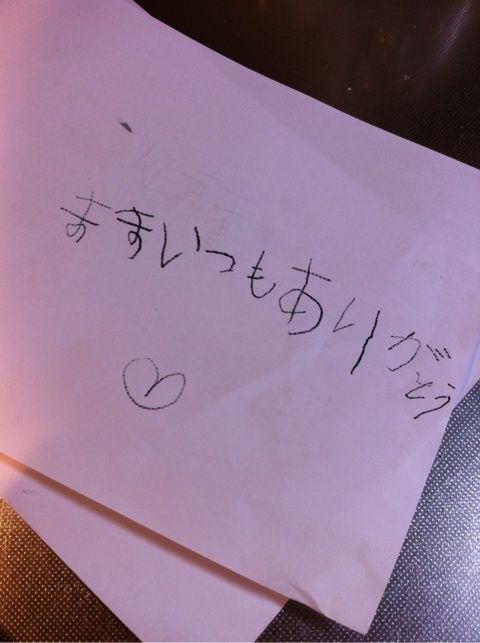 ままいつもありがとう